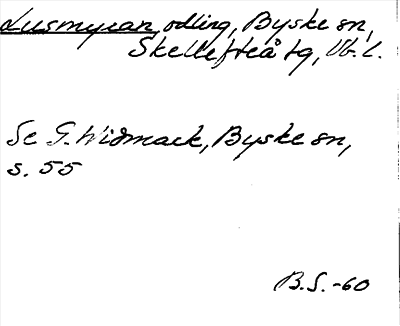 Lusmyran, odling, Byske sn,
Skellefteå tg, Vb. l.
Se G. Widmark, Byske sn,
s. 55
B.S. -60